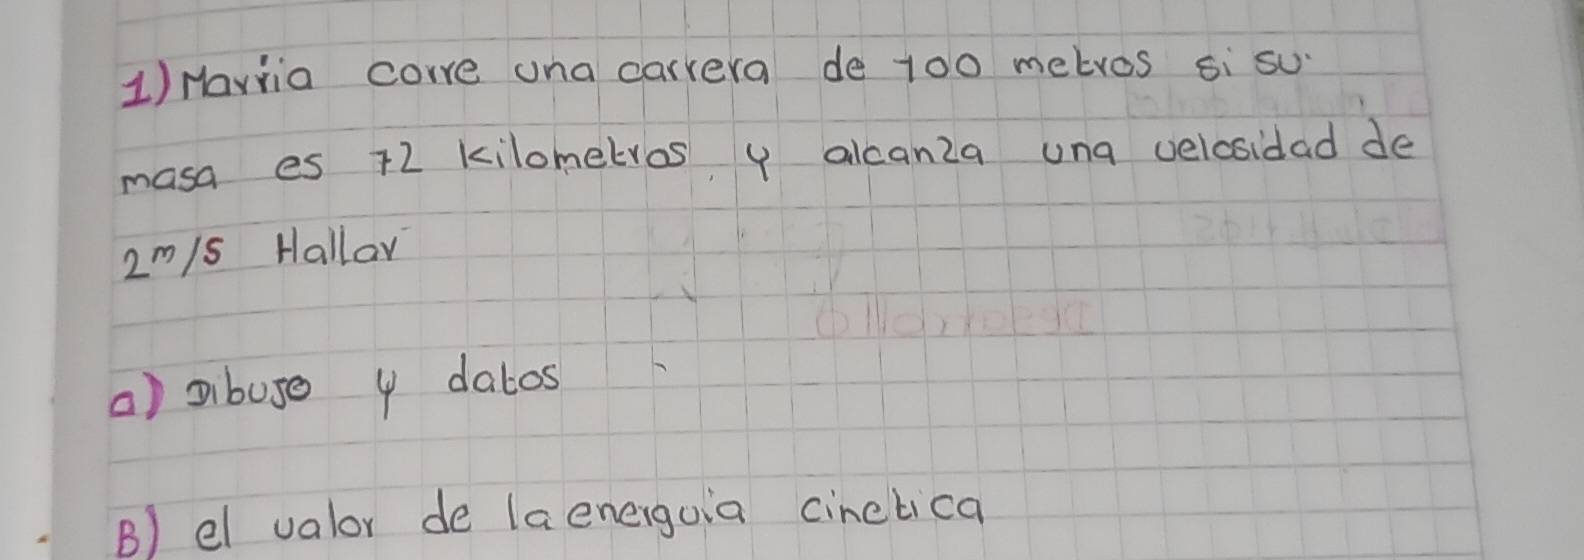 1) Marria corre una carrera de 100 metros si su.
masa es 72 kilometros, y alcanza una velosidad de
2m/s Hallar
a) Dibujo y datos
B) el valor de la energuia cinetica